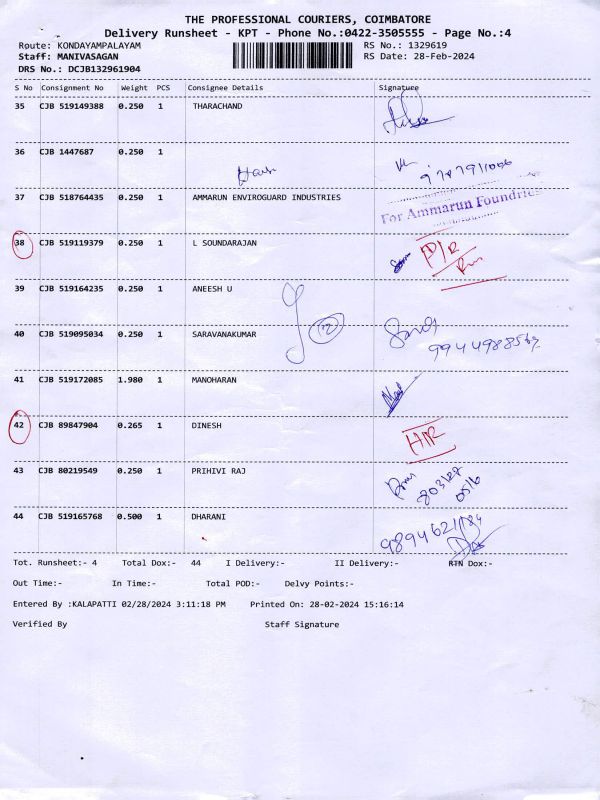 THE PROFESSIONAL COURIERS, COIMBATORE
Delivery Runsheet - KPT - Phone No.:0422-3505555 - Page No.:4
Route: KONDAYAMPALAYAM RS No.: 1329619
Staff: MANIVASAGAN RS Date: 28-Feb-2024
DRS No.: DCJB132961904
S No Consignment No Weight PCS Consignee Details Signature
35 CJB 519149388 0.250 1 THARACHAND
36 CJB 1447687 0.250 1
37 CJB 518764435 0.250 1 AMMARUN ENVIROGUARD INDUSTRIES
For Ammarun Foundries
38 CJB 519119379 0.250 1 L SOUNDARAJAN
39 CJB 519164235 0.250 1 ANEESH U
40 CJB 519095034 0.250 1 SARAVANAKUMAR
41 CJB 519172085 1.980 1 MANOHARAN
42 CJB 89847904 0.265 1 DINESH
43 CJB 80219549 0.250 1 PRIHIVI RAJ
44 CJB 519165768 0.500 1 DHARANI
Tot. Runsheet:- 4 Total Dox:- 44 I Delivery:- II Delivery:- RTN Dox:-
Out Time:- In Time:- Total POD:- Delvy Points:-
Entered By :KALAPATTI 02/28/2024 3:11:18 PM Printed On: 28-02-2024 15:16:14
Verified By Staff Signature